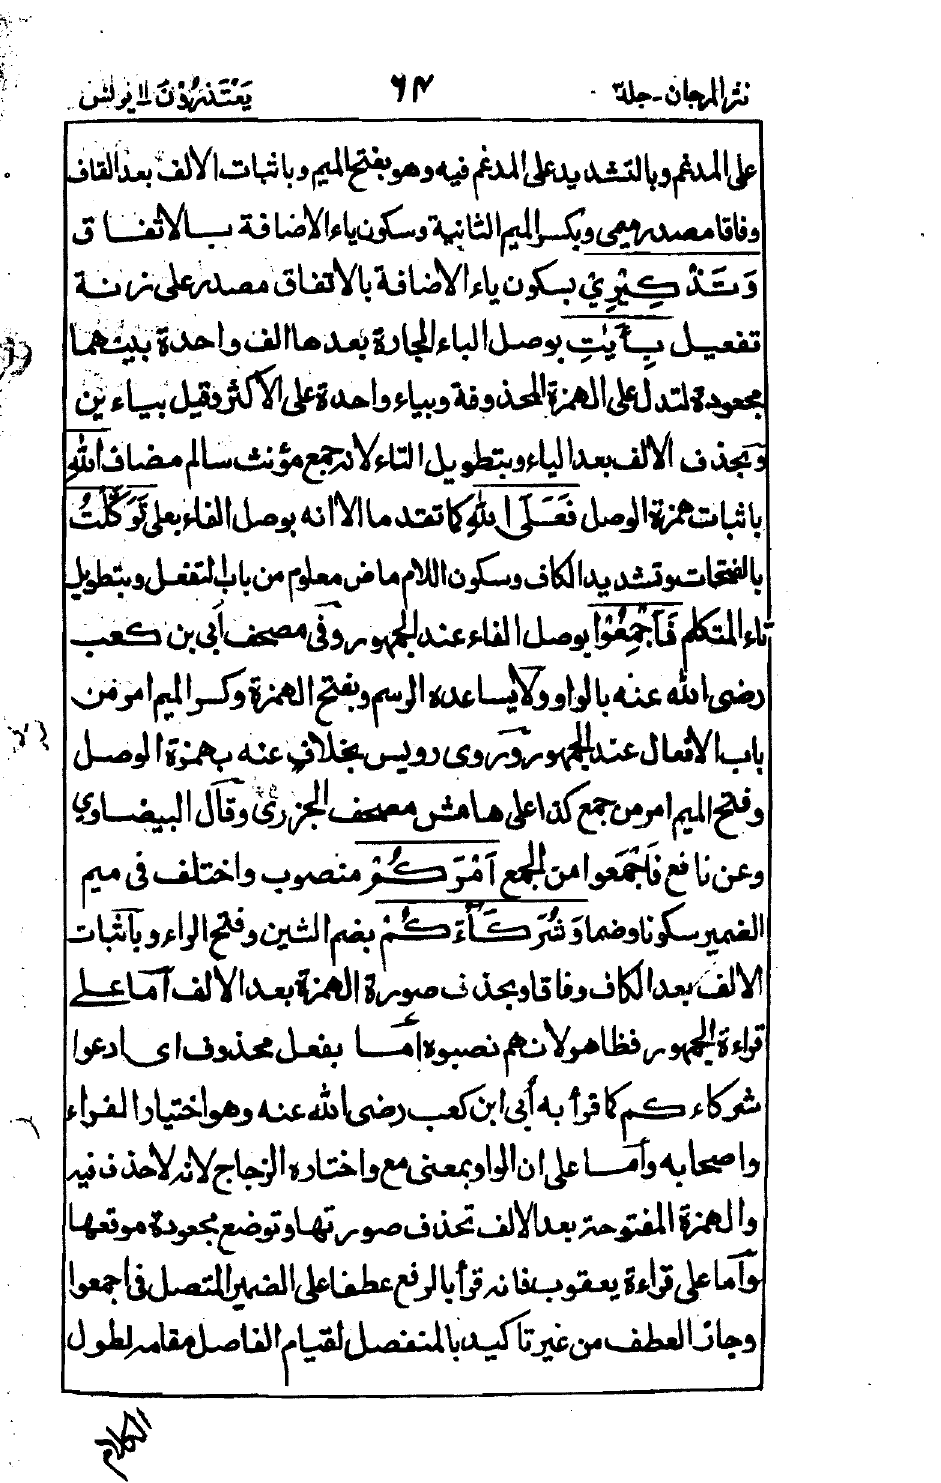 نثر المرجان - جلد٣ ٦٤ يَعْتَذِرُوْنَ ١١ يونس
على المدغم وبالتشديد على المدغم فيه وهو بفتح الميم وباثبات الالف بعد القاف
وفاقا مصدر ميمى وبكسر الميم الثانية وسكون ياء الاضافة بالاتفاق
وَتَذْكِيْرِيْ بسكون ياء الاضافة بالاتفاق مصدر على زنة
تفعيل بِأٰيٰتِ بوصل الباء الجارة بعدها الف واحدة بينهما
مجعودة لتدل على الهمزة المحذوفة وبياء واحدة على الاكثر وقيل بياءين
وبحذف الالف بعد الياء وبتطويل التاء لانه جمع مؤنث سالم مضاف اللّٰهِ
باثبات همزة الوصل فَعَلَى اللّٰهِ كما تقدم الا انه بوصل الفاء بعلى تَوَكَّلْتُ
بالفتحات وتشديد الكاف وسكون اللام ماض معلوم من باب التفعل وبتطويل
تاء المتكلم فَاَجْمِعُوْا بوصل الفاء عند الجمهور وفى مصحف أبى بن كعب
رضى الله عنه بالواو ولا يساعده الرسم وبفتح الهمزة وكسر الميم امر من
باب الافعال عند الجمهور وروى رويس بخلاف عنه بهمزة الوصل
وفتح الميم امر من جمع كذا على هامش مصحف الجزرى وقال البيضاوي
وعن نافع فَاجْمَعوا من الجمع اَمْرَكُمْ منصوب واختلف فى ميم
الضمير سكونا وضما وَشُرَكَآءَكُمْ بضم الشين وفتح الراء وباثبات
الالف بعد الكاف وفاقا وبحذف صورة الهمزة بعد الالف اما على
قراءة الجمهور فظاهر لانهم نصبوه أما بفعل محذوف اى ادعوا
شركاءكم كما قرأ به أبى ابن كعب رضى الله عنه وهو اختيار الفراء
واصحابه وأما على ان الواو بمعنى مع واختاره الزجاج لانه لا حذف فيه
والهمزة المفتوحة بعد الالف تحذف صورتها وتوضع مجعودة موقعها
وأما على قراءة يعقوب فانه قرأ بالرفع عطفا على الضمير المتصل فى اجمعوا
وجاز العطف من غير تاكيد بالمنفصل لقيام الفاصل مقامه لطول
الكلام